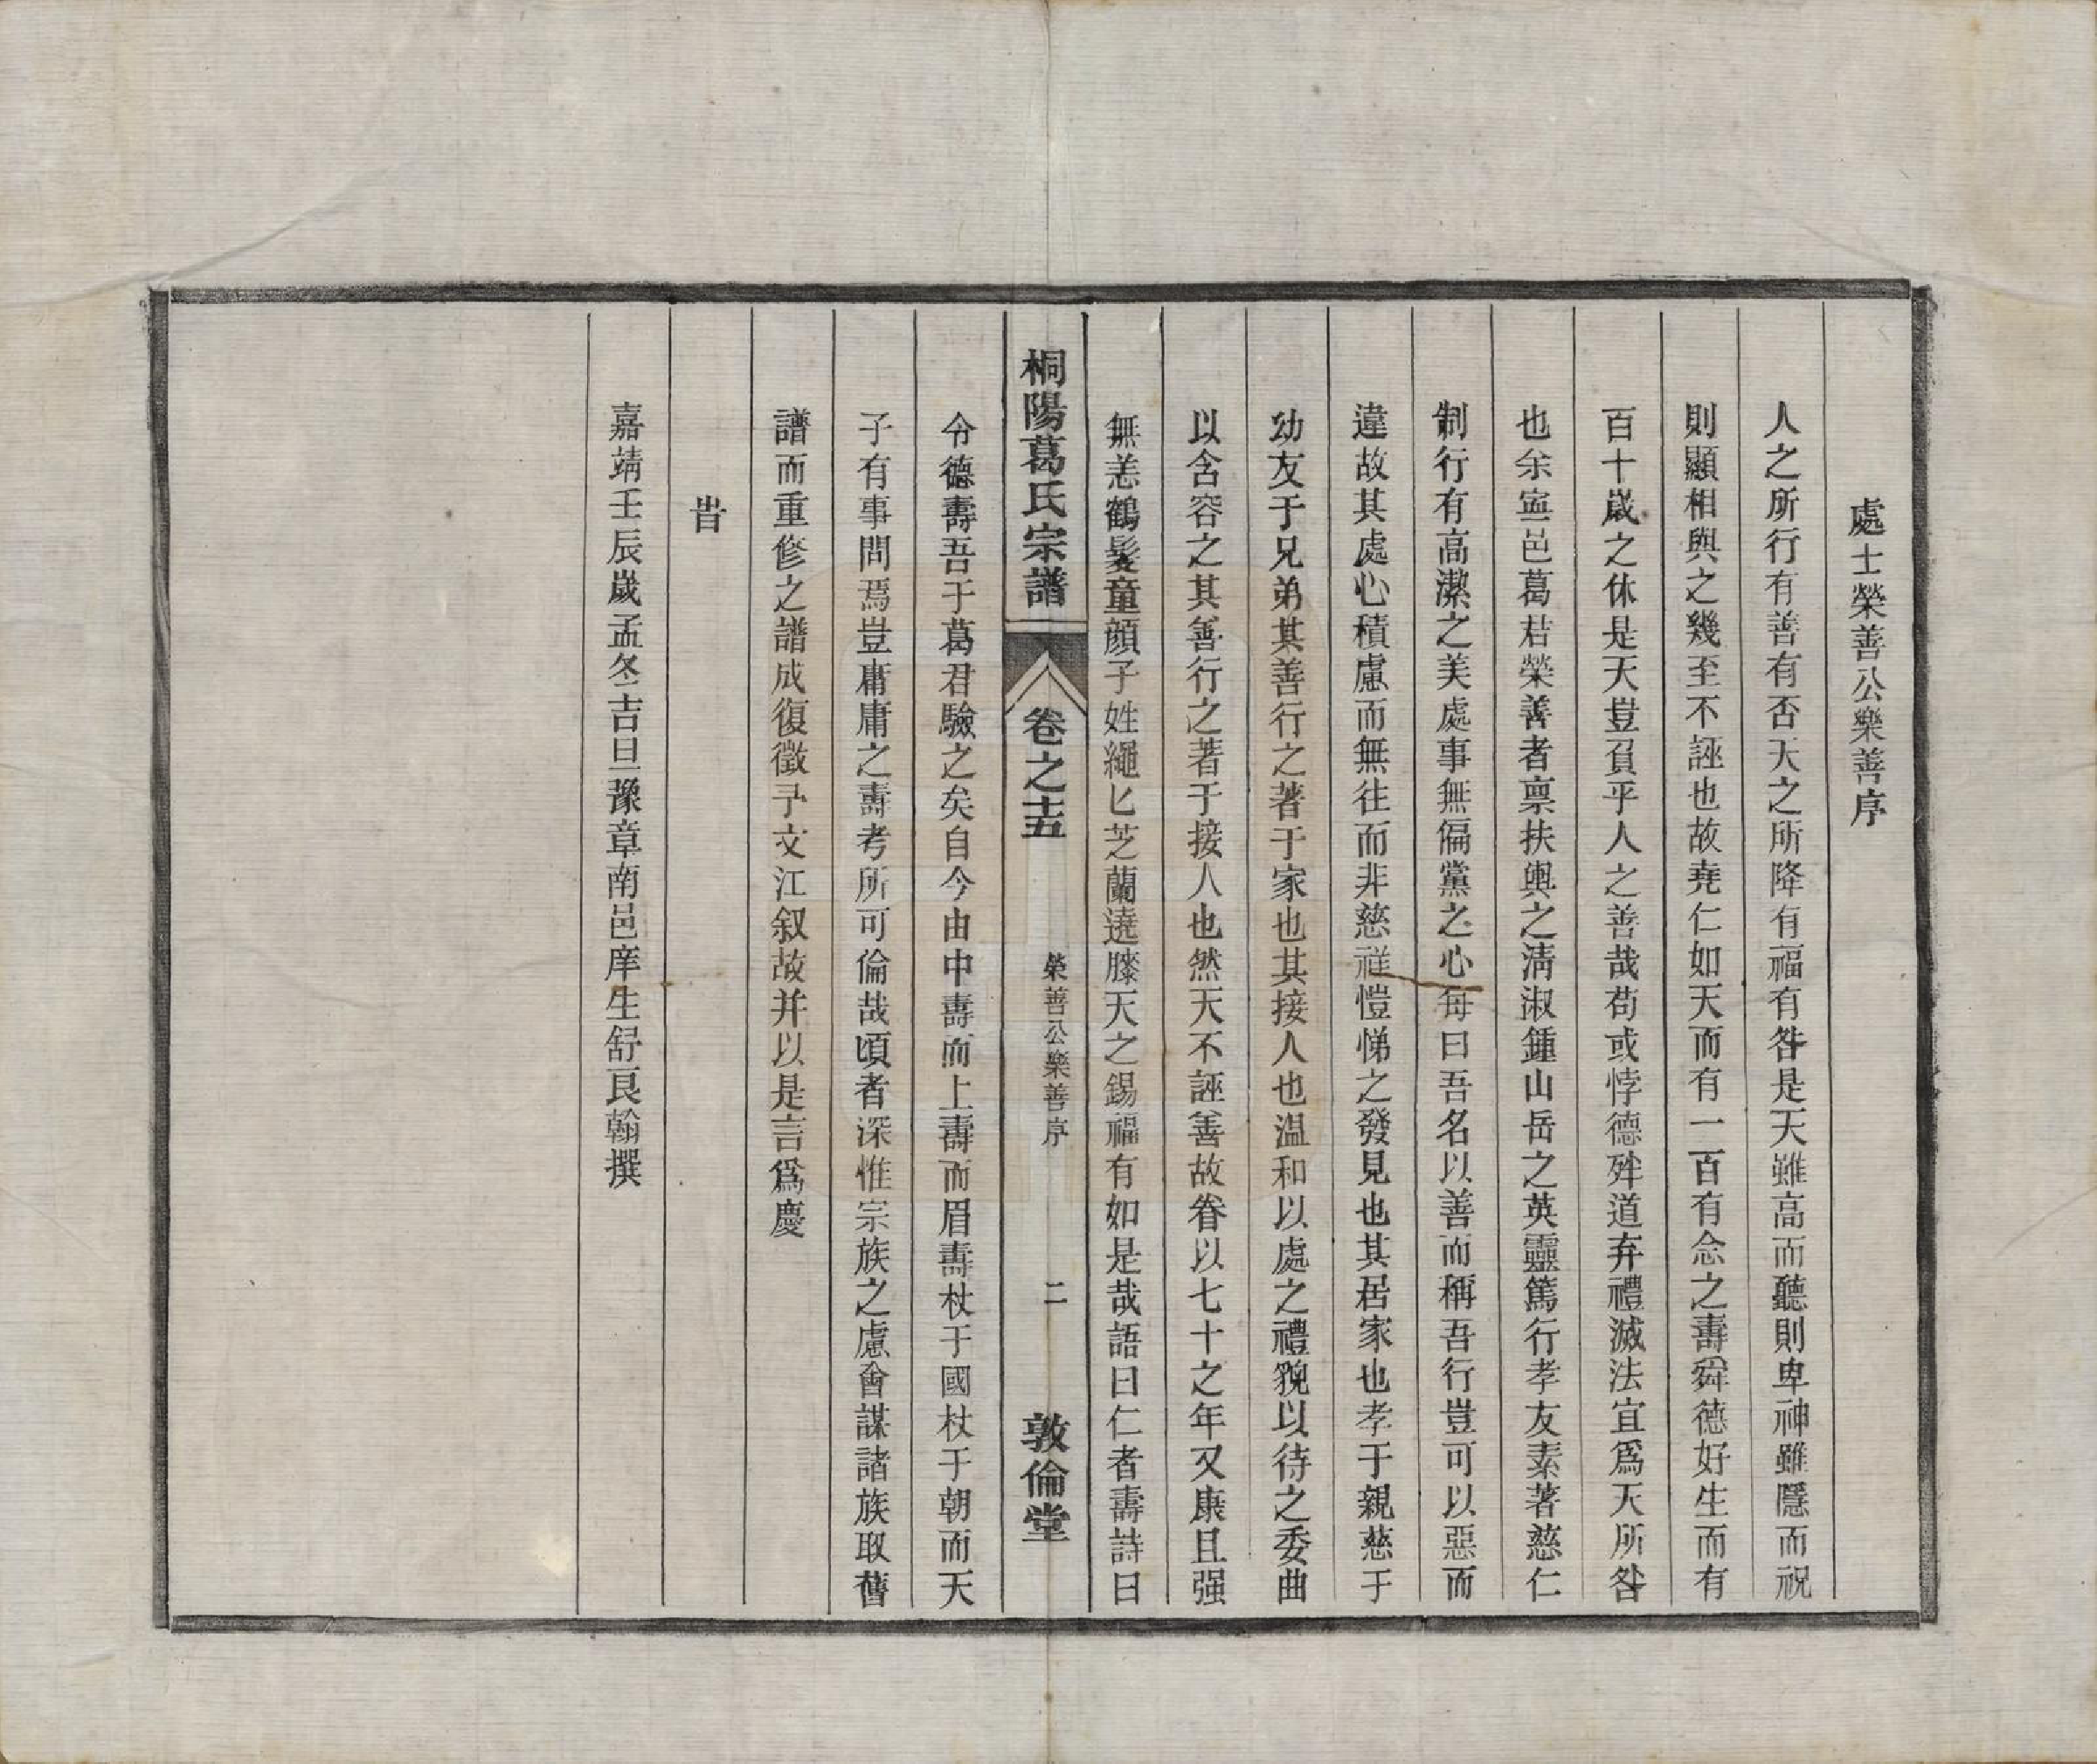 處士榮善公樂善序
人之所行有善有否天之所降有福有咎是天雖高而聽則卑神雖隱而視
則顯相與之幾至不誣也故堯仁如天而有一百有念之壽舜德好生而有
百十歲之休是天豈負乎人之善哉苟或悖德舛道弃禮滅法宜爲天所咎
也余寧邑葛君榮善者稟扶輿之淸淑鍾山岳之英靈篤行孝友素著慈仁
制行有高潔之美處事無偏黨之心每曰吾名以善而稱吾行豈可以惡而
違故其處心積慮而無往而非慈祥愷悌之發見也其居家也孝于親慈于
幼友于兄弟其善行之著于家也其接人也温和以處之禮貌以待之委曲
以含容之其善行之著于接人也然天不誣善故眷以七十之年又康且强
無恙鶴髮童顔子姓繩匕芝蘭遶膝天之錫福有如是哉語曰仁者壽詩曰
桐陽葛氏宗譜 卷之十五 榮善公樂善序 二 敦倫堂
令德壽吾于葛君驗之矣自今由中壽而上壽而眉壽杖于國杖于朝而天
子有事問焉豈庸庸之壽考所可倫哉頃者深惟宗族之慮會謀諸族取舊
譜而重修之譜成復徵予文江叙故并以是言爲慶
旹
嘉靖壬辰歲孟冬吉旦豫章南邑庠生舒良翰撰